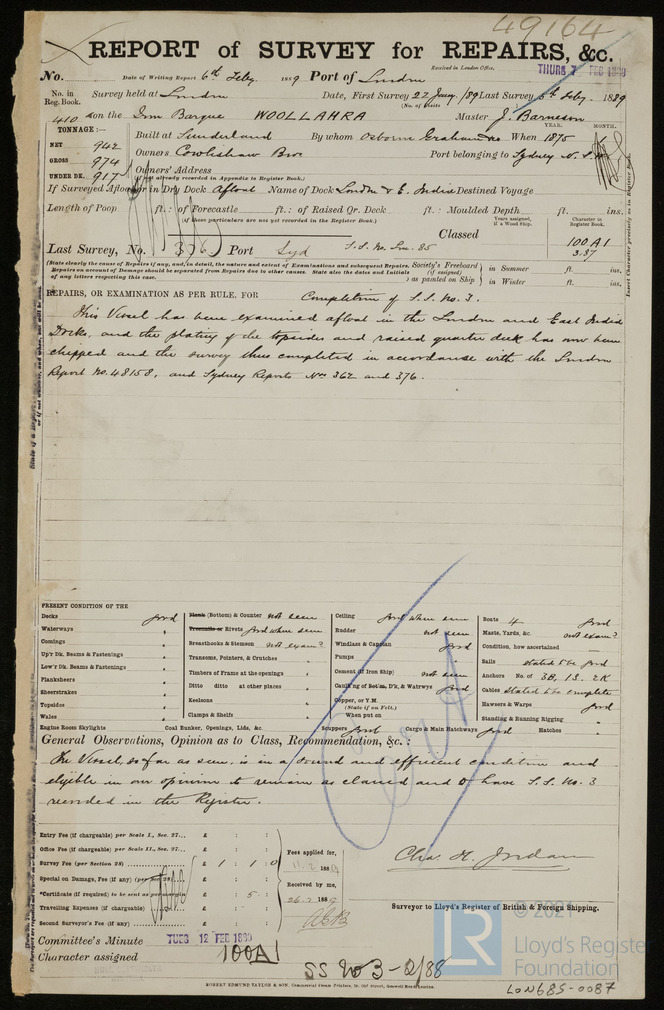 49164
REPORT of SURVEY for REPAIRS, &c.
Received in London Office,
THURS 7 FEB 1889
No. Date of Writing Report 6th Feby. 1889 Port of London
No. in Reg. Book. Survey held at London Date, First Survey 22 Jany /89 Last Survey 5th Feby. 1889
(No. of Visits
410 on the Iron Barque WOOLLAHRA Master J. Barneson
TONNAGE:— YEAR. MONTH.
NET 942 Built at Sunderland By whom Osborne Graham & Co When 1875
GROSS 974 Owners Cowlishaw Bros. Port belonging to Sydney N.S.W.
UNDER DK. 917 Owners' Address
(if not already recorded in Appendix to Register Book.)
If Surveyed Afloat or in Dry Dock Afloat Name of Dock London & E. India Destined Voyage
Length of Poop ft.: of Forecastle ft.: of Raised Qr. Deck ft.: Moulded Depth ft. ins.
(if these particulars are not yet recorded in the Register Book.)
Years assigned, if a Wood Ship.
Character in Register Book.
Classed
Last Survey, No. 376 Port Syd S.S. No. 85
100 A1
3.87
(State clearly the cause of Repairs if any, and, in detail, the nature and extent of Examinations and subsequent Repairs.
Repairs on account of Damage should be separated from Repairs due to other causes. State also the dates and Initials
of any letters respecting this case.
Society's Freeboard (if assigned) as painted on Ship
in Summer ft. ins.
in Winter ft. ins.
REPAIRS, OR EXAMINATION AS PER RULE, FOR Completion of S.S. No. 3.
This Vessel has been examined afloat in the London and East India
Docks, and the plating of the topsides and raised quarter deck has now been
chipped and the survey thus completed in accordance with the London
Report No. 48158, and Sydney Reports Nos 362 and 376.
PRESENT CONDITION OF THE
Decks good
Waterways "
Comings "
Up'r Dk. Beams & Fastenings "
Low'r Dk. Beams & Fastenings "
Planksheers "
Sheerstrakes "
Topsides "
Wales "
Engine Room Skylights
Plank (Bottom) & Counter not seen
Treenails or Rivets good where seen
Breasthooks & Stemson not exam?
Transoms, Pointers, & Crutches
Timbers of Frame at the openings
Ditto ditto at other places
Keelsons
Clamps & Shelfs
Coal Bunker, Openings, Lids, &c.
Ceiling good where seen
Rudder not seen
Windlass & Capstan good
Pumps "
Cement (if Iron Ship) not seen
Caulk'ng of Bot'm, D'k, & Watrwys good
Copper, or Y.M.
(State if on Felt.)
When put on
Scuppers good
Boats 4 good
Masts, Yards, &c. not exam?
Condition, how ascertained
Sails stated to be good
Anchors No. of 3B, 1S, 2K
Cables stated to be complete
Hawsers & Warps good
Standing & Running Rigging "
Cargo & Main Hatchways good Hatches "
General Observations, Opinion as to Class, Recommendation, &c.:
The Vessel, so far as seen, is in a sound and efficient condition and
eligible in our opinion to remain as classed and to have S.S. No. 3
recorded in the Register.
Entry Fee (if chargeable) per Scale I., Sec. 27... £ : :
Office Fee (if chargeable) per Scale II., Sec. 27... £ : :
Survey Fee (per Section 28) £ 1 : 1 : 0
Special on Damage, Fee (if any) (per Sec. 28) £ : :
*Certificate (if required) to be sent as per margin £ : 5 :
Travelling Expenses (if chargeable) £ : :
Second Surveyor's Fee (if any) £ : :
Fees applied for,
11.2.1889
Received by me,
26.2.1889
Chas. H. Jordan
Surveyor to Lloyd's Register of British & Foreign Shipping.
Committee's Minute TUES 12 FEB 1889
Character assigned 100A1
SS No 3-2/88
ROBERT EDMUND TAYLOR & SON, Commercial Steam Printers, 19, Old Street, Goswell Road, London.
© 2021
LR
Lloyd's Register
Foundation
LON685-0087